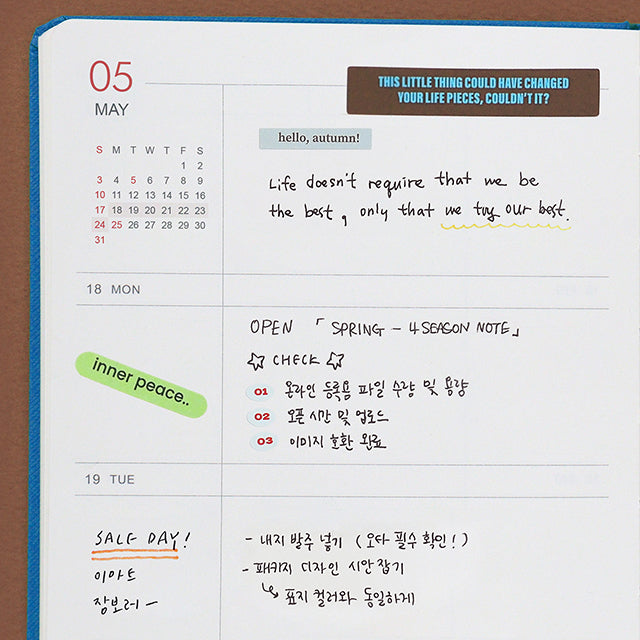 05
MAY
THIS LITTLE THING COULD HAVE CHANGED
YOUR LIFE PIECES, COULDN'T IT?
hello, autumn!
S M T W T F S
1 2
3 4 5 6 7 8 9
10 11 12 13 14 15 16
17 18 19 20 21 22 23
24 25 26 27 28 29 30
31
Life doesn't require that we be
the best, only that we try our best.
18 MON
inner peace..
OPEN 「SPRING - 4 SEASON NOTE」
☆ CHECK ☆
01 온라인 등록용 파일 수량 및 용량
02 오픈 시간 및 업로드
03 이미지 호환 완료
19 TUE
SALE DAY!
이마트
장보러 -
- 내지 발주 넣기 (오타 필수 확인!)
- 패키지 디자인 시안 잡기
↳ 표지 컬러와 동일하게